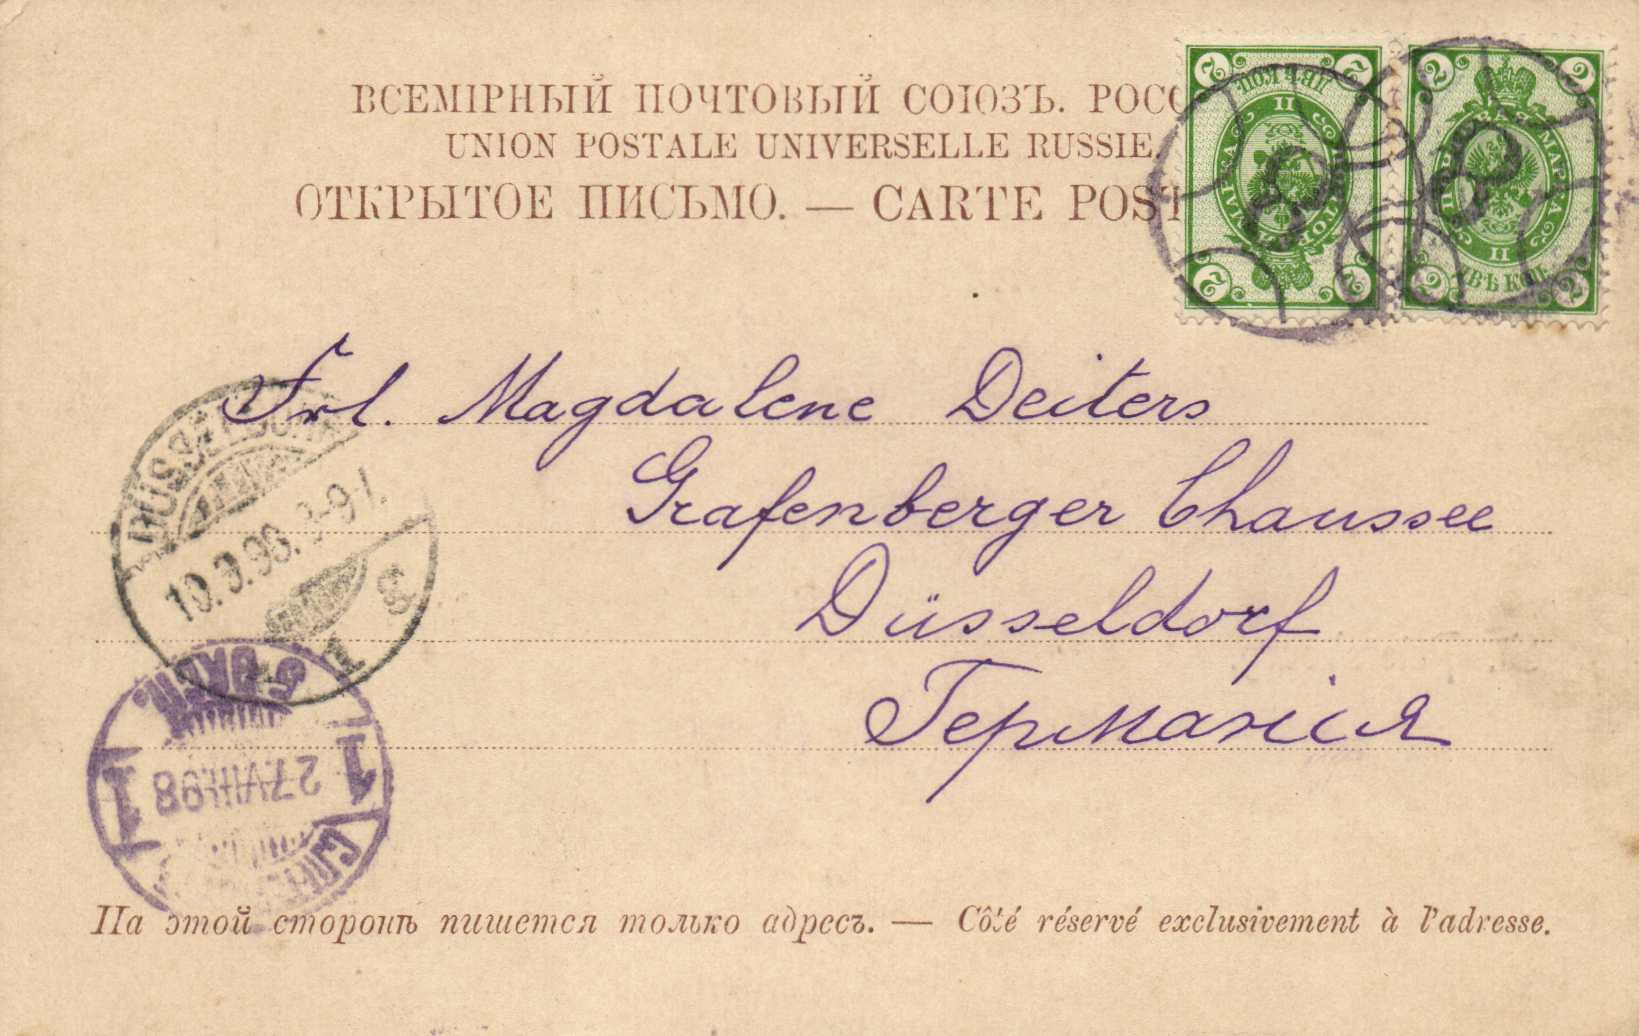 ВСЕМІРНЫЙ ПОЧТОВЫЙ СОЮЗЪ. РОСС
UNION POSTALE UNIVERSELLE RUSSIE.
ОТКРЫТОЕ ПИСЬМО. — CARTE POST
2 2
ДВѢ КОП.
II
ПОЧТОВАЯ МАРКА
2 2
2 2
ПОЧТОВАЯ МАРКА
II
ДВѢ КОП.
2 2
8 8
Frl. Magdalene Deiters
Grafenberger Chaussee
Düsseldorf
Германія
DÜSSELDORF
1
5 ЭКСП.
1 27 VIII 98 1
На этой сторонѣ пишется только адресъ. — Côté réservé exclusivement à l'adresse.